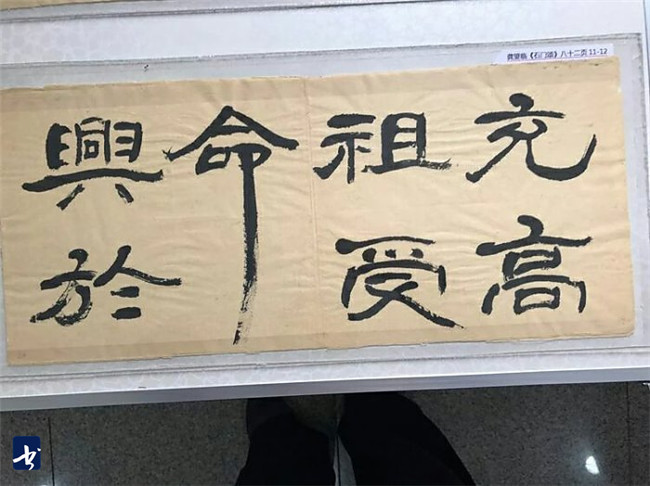 龚望临《石门颂》八十二页 11-12
充高
祖受
命
興於
书